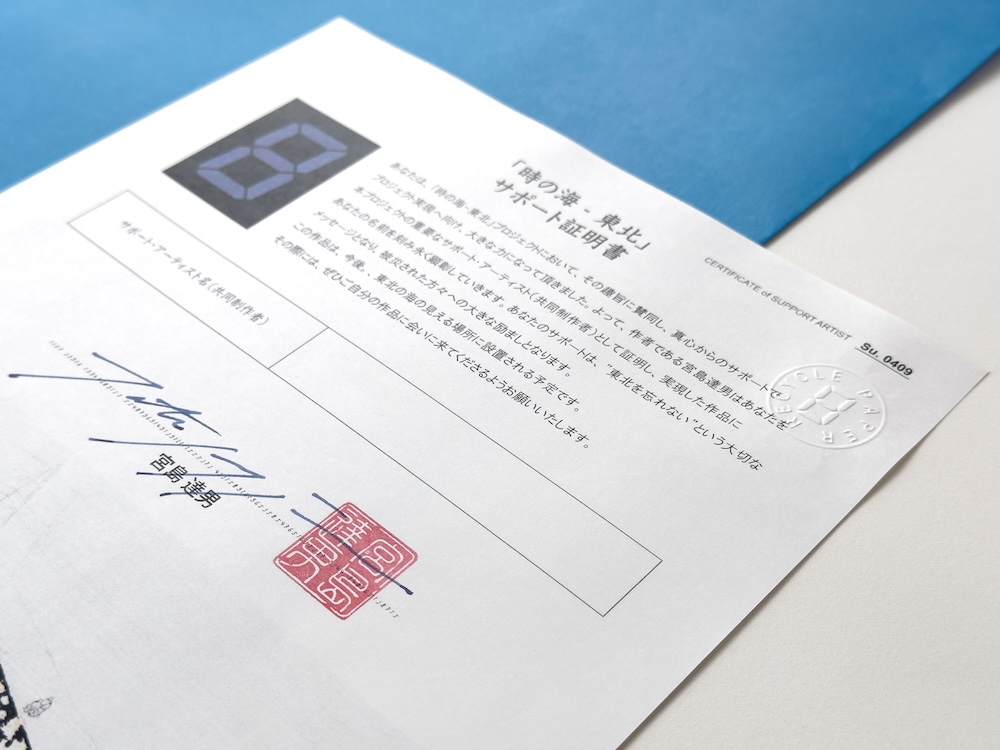 CERTIFICATE of SUPPORT ARTIST
Su. 0409
「時の海 - 東北」
サポート証明書
あなたは、「時の海-東北」プロジェクトにおいて、その趣旨に賛同し、真心からのサポートで
プロジェクト実現へ向け、大きな力になって頂きました。よって、作者である宮島達男はあなたを
本プロジェクトの重要なサポート・アーティスト(共同制作者)として証明し、実現した作品に
あなたの名前を刻み永く顕彰していきます。あなたのサポートは、“東北を忘れない”という大切な
メッセージとなり、被災された方々への大きな励ましとなります。
この作品は、今後、、東北の海の見える場所に設置される予定です。
その際には、ぜひご自分の作品に会いに来てくださるようお願いいたします。
RECYCLE PAPER
8
サポート・アーティスト名(共同制作者)
宮島達男
宮島
達男